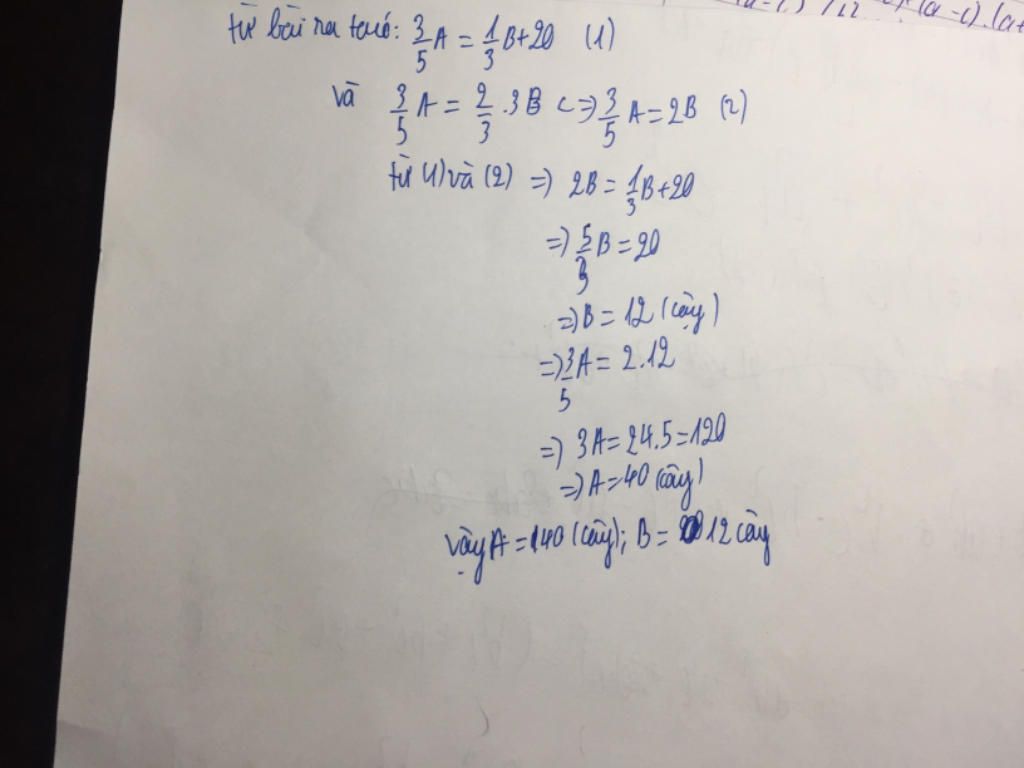 từ bài ra ta có: 3/5 A = 1/3 B + 20 (1)
và 3/5 A = 2/3 . 3B <=> 3/5 A = 2B (2)
từ (1) và (2) => 2B = 1/3 B + 20
=> 5/3 B = 20
=> B = 12 (cây)
=> 3/5 A = 2.12
=> 3A = 24.5 = 120
=> A = 40 (cây)
vậy A = 40 (cây); B = 12 cây